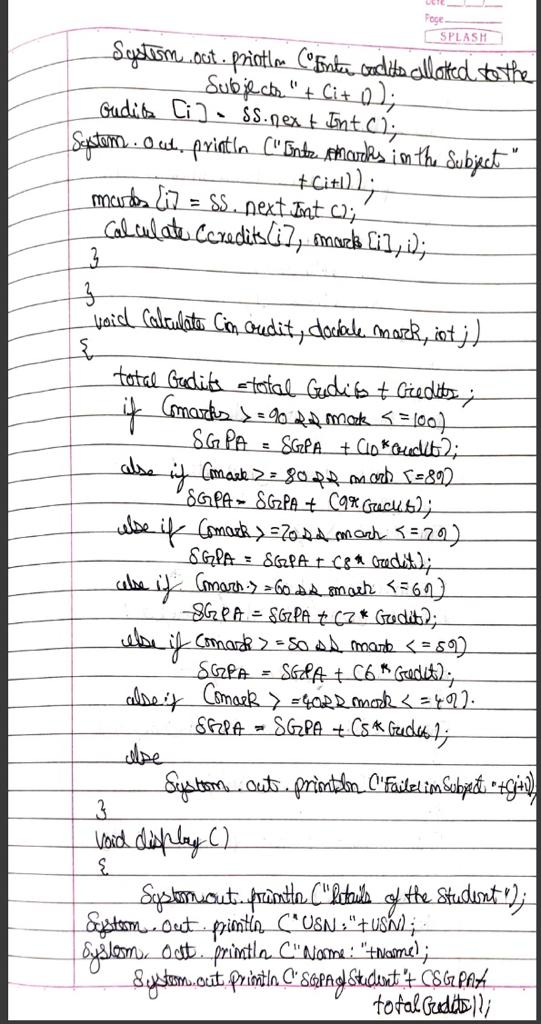 Date
Page
SPLASH
System.out.println("Enter credits alloted to the
Subject" + (i+1));
credits [i] = SS.next Int();
System.out.println("Enter marks in the Subject"
+(i+1));
marks [i] = SS.next Int();
Calculate (credits[i], marks[i], i);
}
}
void Calculate (in credit, double mark, int j)
{
total Credits = total Credits + Credits;
if (marks >= 90 && mark <= 100)
SGPA = SGPA + (10*credit);
else if (mark >= 80 && mark <= 89)
SGPA = SGPA + (9* credit);
else if (mark >= 70 && mark <= 79)
SGPA = SGPA + (8* credit);
else if (mark >= 60 && mark <= 69)
SGPA = SGPA + (7* Credit);
else if (mark >= 50 && mark <= 59)
SGPA = SGPA + (6* Credit);
else if (mark >= 40 && mark <= 49).
SGPA = SGPA + (5* Credit);
else
System.out.println("Failed in Subject "+(j+1));
}
void display()
{
System.out.println("Details of the Student");
System.out.println("USN:"+USN);
System.out.println("Name: "+Name);
System.out println("SGPA of Student"+ (SGPA/
total Credits));